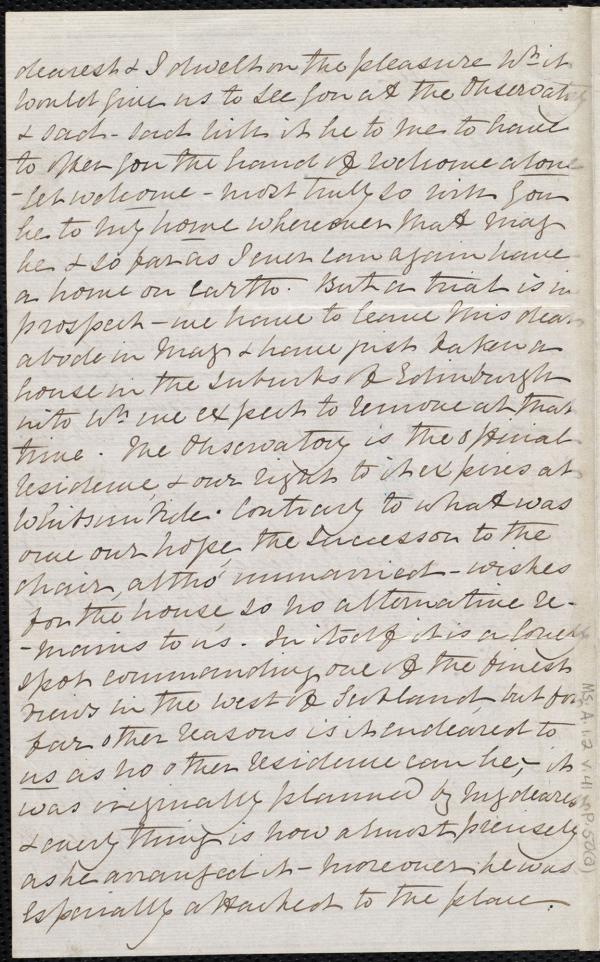 dearest & I dwelt on the pleasure wh it
would give us to see you at the Observatory
& sad - sad will it be to me to have
to offer you the hand of welcome alone
- yet welcome - most truly so will you
be to my home wherever that may
be & so far as I ever can again have
a home on earth. But a trial is in
prospect - we have to leave this dear
abode in May & have just taken a
house in the suburbs of Edinburgh
into wh we expect to remove at that
time. The Observatory is the official
residence, & our right to it expires at
Whitsuntide. Contrary to what was
once our hope, the Successor to the
chair, altho' unmarried - wishes
for the house, so no alternative re-
-mains to us. In itself it is a lovely
spot commanding one of the finest
views in the west of Scotland, but for
far other reasons is it endeared to
us as no other residence can be, - it
was originally planned by my dearest
& every thing is now almost precisely
as he arranged it - moreover he was
especially attached to the place.
Ms. A. 1. 2 v. 41 p. 52(3)